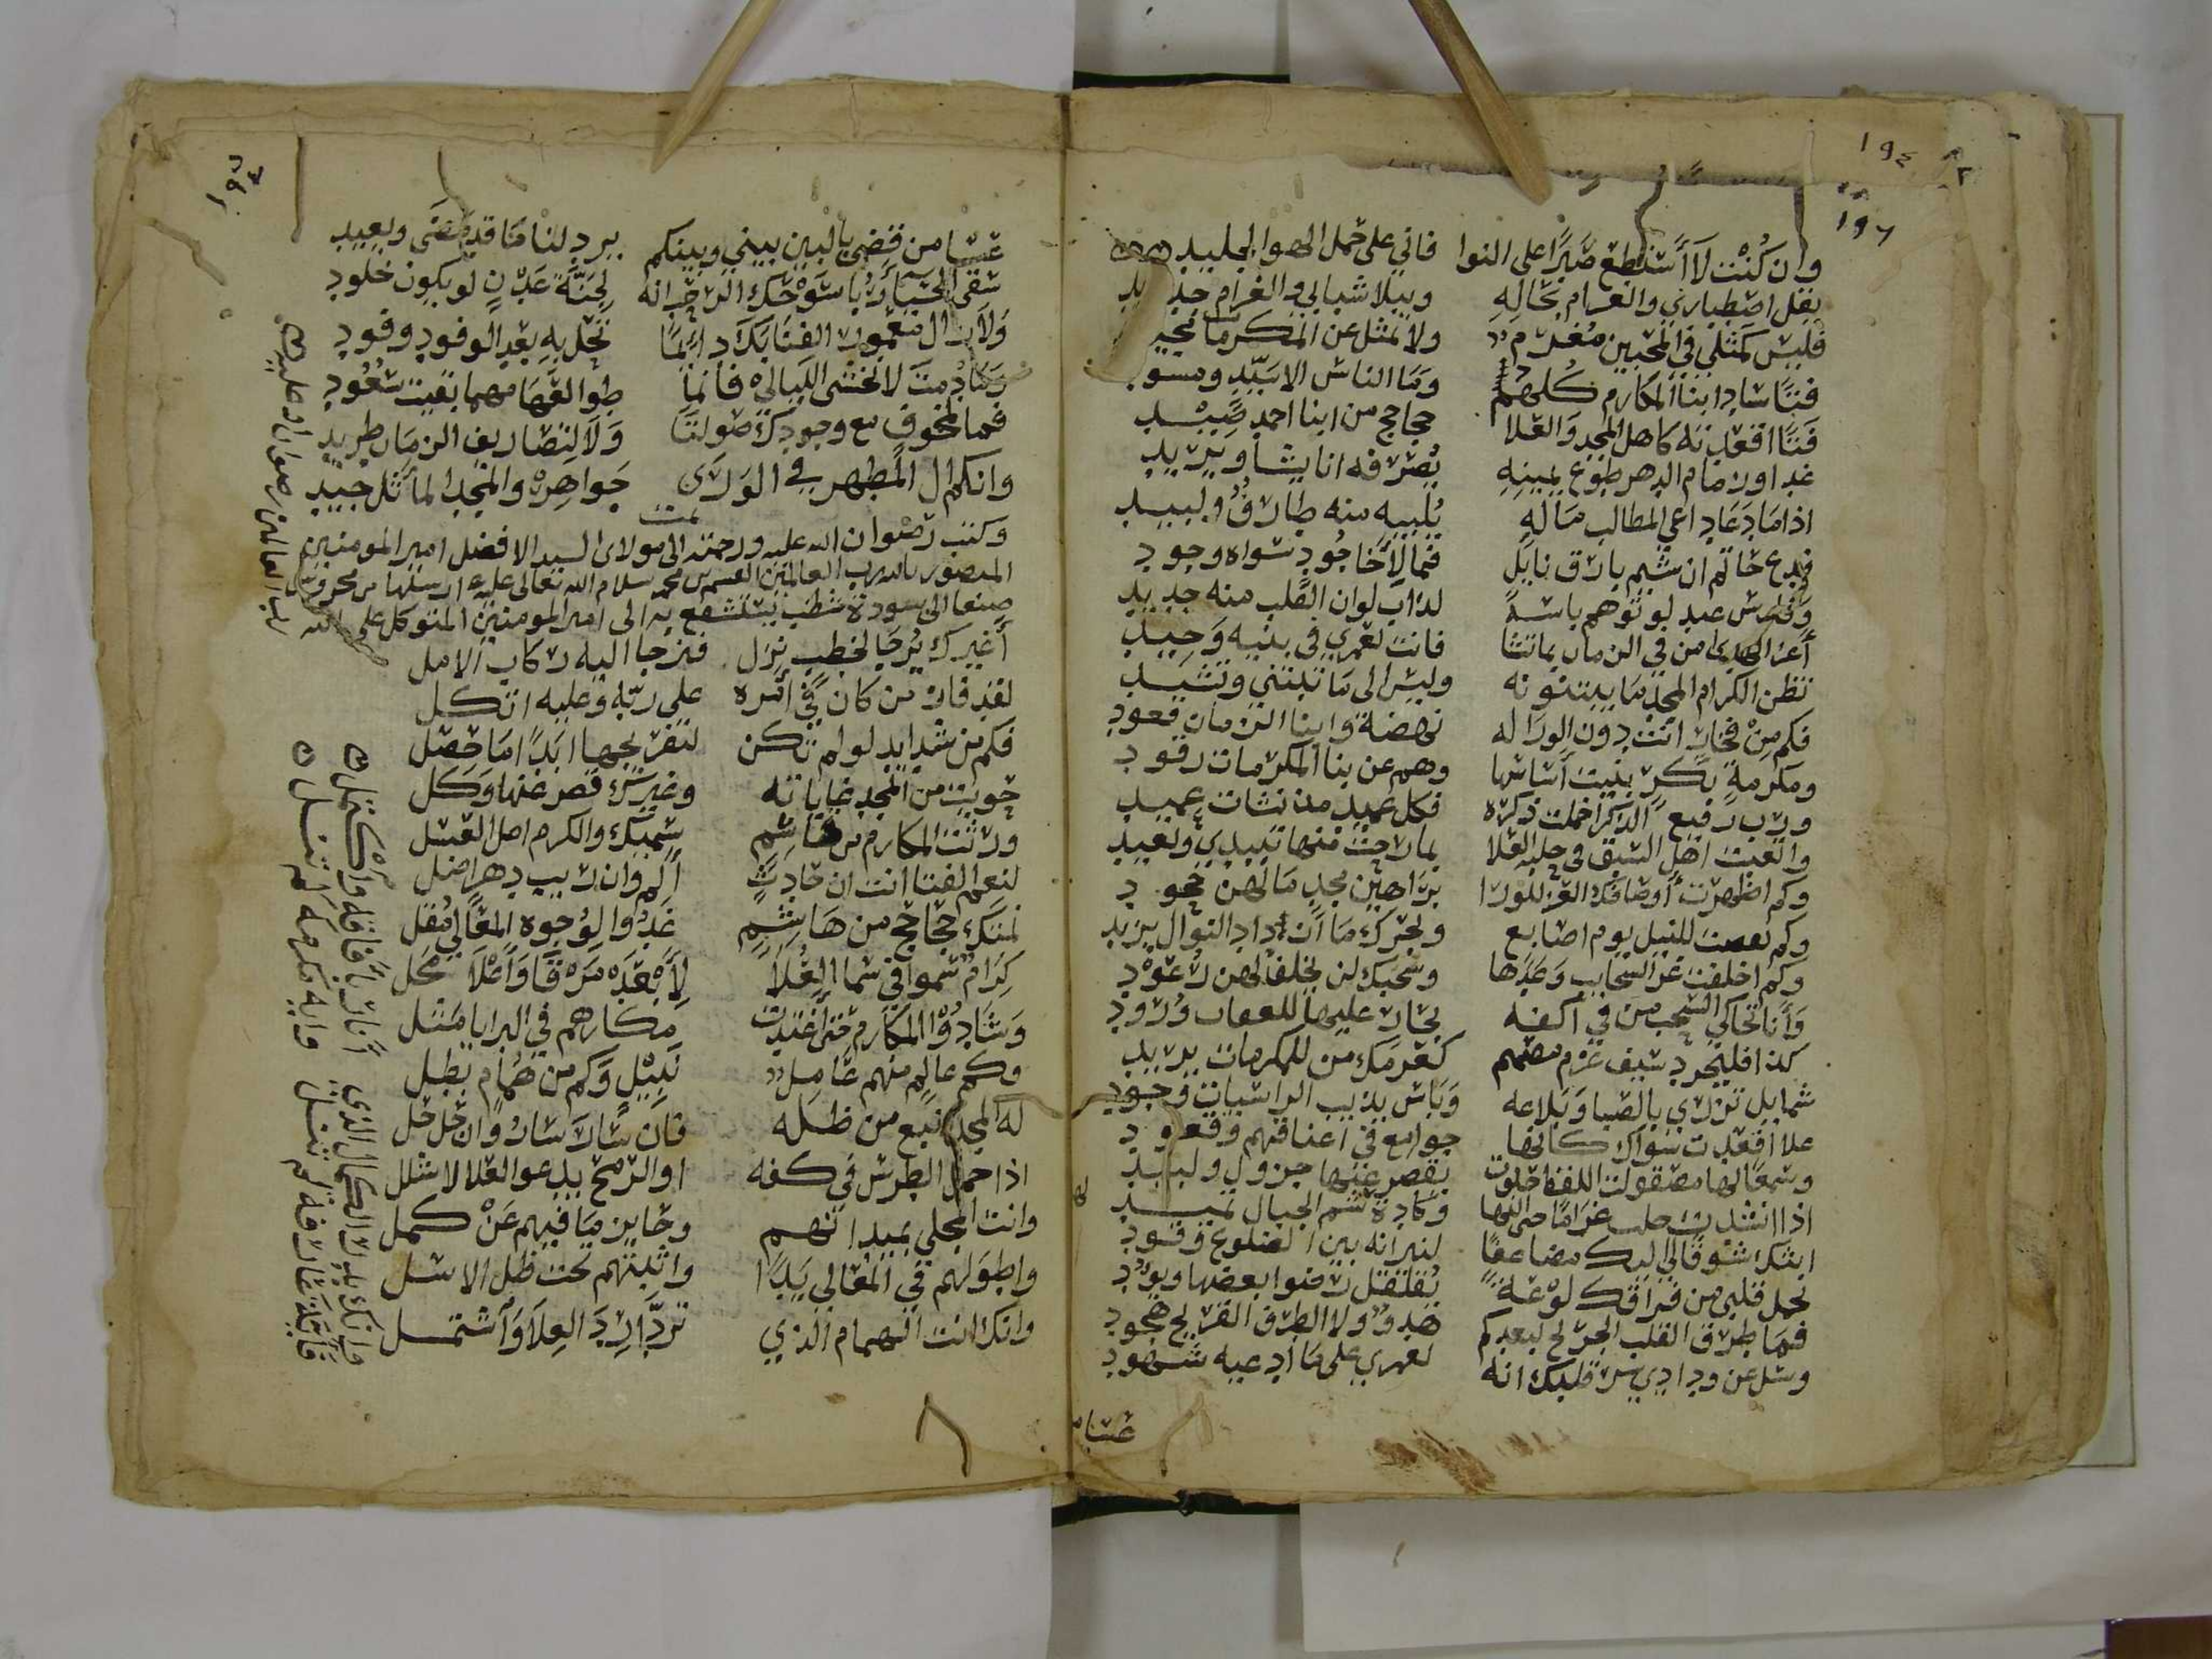 ١٩٤
١٩٦
وان كُنْت لَا أَسْتَطع صَبْرًا على النوا فاني على حمل الهوا لجليد
يقل اصطباري والغرام بحَالِهِ ويبلا شبابي والغرام جديد
فليسَ كَمثلي في المحبين مُغرَم ولا مثل عن المكرمات
فتًا ساد ابنا المكارم كُلهُم وَمَا الناسُ الا سَيّدٍ ومسود
فَتًا اقعدته كاهل المجد وَالعُلا حجاجح من ابنا احمد صِيْد
غدا اورمام الدهر طوع يمينهِ يُصَرّفه انا يشا ويريد
اذا مَا دَعَا داعي المطالب مَالَهِ يُلبيه منه طارفٌ وتليد
فدع حَاتم ان شيم بارق نايل فما لِأخَا جُودٍ سواه وجود
عبد لو توهم باسَهُ لذابَ لوان القلب منه حديد
من في الزمان بماتشا فانت لعمري في بنيه وَحِيد
تظن الكرام المجد مَا يبتنونه وليسَ الى مَا تبتني وتشيد
فكم مِنْ فخار انت دون الورا له نهضة وابنا الزمان قعود
ومكرمةٍ بكرٍ بنيت اساسَها وهم عن بنا المكرمات رقود
وربَ رفيع الذكر اخملت ذكره فكل عميدٍ مذ نشات عميد
واتعبت اهل السبق في حلبة العُلا بمارحت منها تبتدي وتعيد
وكم اظهرت أوصَافك الغر للورا براهين مجدٍ مَا لهن جحود
وكم للنيل يوم اصابع وبحرك مَا ان زاد النوال يزيد
وكم اخلفت غر السحايب وَعدَها وسحبك لن يخلف لهن رُعوْد
وَأنا تحاكي السحب من في أكفه بحَار عليها للعفات وُرود
كذا فليجرد سَيف عزم مصَمم كعَزمك من للمكرمات يريد
شمايل تزري بالصَبا وَبلاغه وَباس يذيب الراسيات وجود
علا اقعدت سواك كانها جوامع في أعناقهم وقعود
يقصر عنها جرول ولبيد
اذا انشدت وكادت شم الجبال تميد
ابثك شوقًا لي اليك مضاعفًا لنيرانه بين الضلوع وقود
تحمل قلبي من فراقك لوْعَةً تقلقل رضوا بعضها ويؤد
فمَا طرق القلب الجريح لبعدكم هدو ولا الطرف القريح هجود
وسَل عن ودادي سر قلبك انه لعمري على مَا أدعيه شهود
عسَا
١٩٤
عسَا من قضى بالبين بيني وبينكم يرد لنا مَا قد مَضَى ويعيد
سقى الحيَا دَارًا لِجَنَّةَ عَدْنٍ لو يكون خلود
وَلا زال معمور الفنا بك دايمًا تحل بهِ بعد الوفود وفود
وَمَا دُمتَ لا نخشى الليالي فانما طوالعَهَا مهما بقيت سُعُود
فما لمخوفٍ مع وجودك صَولةً وَلَا لتصَاريف الزمان طريد
وانكم ال المُطهر في الورى جَواهِرهُ والمجد المأثل جيد
تمت
وكتب رضوان الله عليه ورحمته الى مولاى السيد الافضل امير المومنين
المنصور بالله رب العالمين القسم بن محمد سلام الله تعالى عليه ارسلها من محروس
صنعا الى سودة شظب يستشفع به الى امير المومنين المتوكل على الله
رب العالمين رضوان الله عليه
أغيرك يُرجَا لخطبٍ نزل فتزجا اليه ركاب الامل
لقد فاز من كان في امره على ربّهِ وعليه اتكل
فكم من شدايد لو لم تكن لتفريجها ابدًا مَا حَصَل
حويت من المجد غاياته وغيرك قصر عنها وَكَل
ورثت المكارم من هَاشِم سميك والكرم اصل
لنعم الفتا انت ان حَادِثٌ ألم وان ريب دهر اضل
نمتك حجاجح من هَاشِم غَدُوا لوُجوه المعَالي مُقل
كِرَامٌ سموا في سَما العُلَا لِأَبْعَدِهَ مَرْقًا وَأَعْلَا مَحَل
وَشَادُوا المكارم حَتى اغتدت مكارهم في البرايا مَثل
وكم عالمٍ منهم عَامِل نَبِيْلٍ وَكم من هُمامٍ بطل
له المجد انبع من ظله فان سَار سَارَ وان حَل حَل
اذا حمل الطِرس في كفه او الرمح يدعو العلا لا شلل
وانت المجلي بميدانهم وحَايز مَا فيهم عَنْ كمل
واطولهم في المعَالي يَدًا واثبتهم تحت ظل الاسَل
وانك انت الهمام الذي تردَّا رِدَا العِلا وَاشتمل
وانك بدر الكمال الذي أنار بأفاقه واكتمل
فاية مكرمة لم تنل